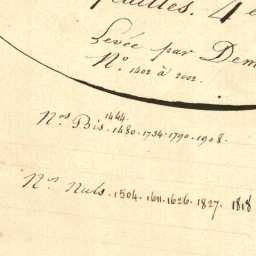 feuilles. 4e
Levée par Dem
Nº. 1402 à 2002.
1444.
Nos Bis. 1480. 1734. 1790. 1908.
Nos Nuls. 1504. 1611. 1626. 1827. 1818